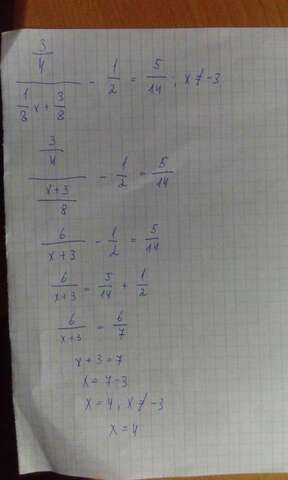 (3/4)/(1/8 x + 3/8) - 1/2 = 5/14 ; x ≠ -3
(3/4)/((x+3)/8) - 1/2 = 5/14
6/(x+3) - 1/2 = 5/14
6/(x+3) = 5/14 + 1/2
6/(x+3) = 6/7
x+3=7
x=7-3
x=4, x≠-3
x=4